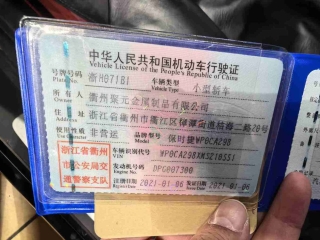 中华人民共和国机动车行驶证
Vehicle License of the People's Republic of China
号牌号码 浙H071B1 车辆类型 小型轿车
Plate No. Vehicle Type
所有人 衢州聚元金属制品有限公司
Owner
住址 浙江省衢州市衢江区
Address
使用性质 非营运 品牌型号 保时捷WP0CA298
Use Character Model
浙江省衢州市公安局交通警察支队
车辆识别代号
VIN
发动机号码 DPG007300
Engine No.
注册日期 2021-01-06 发证日期 2021-01-06
Register Date Issue Date